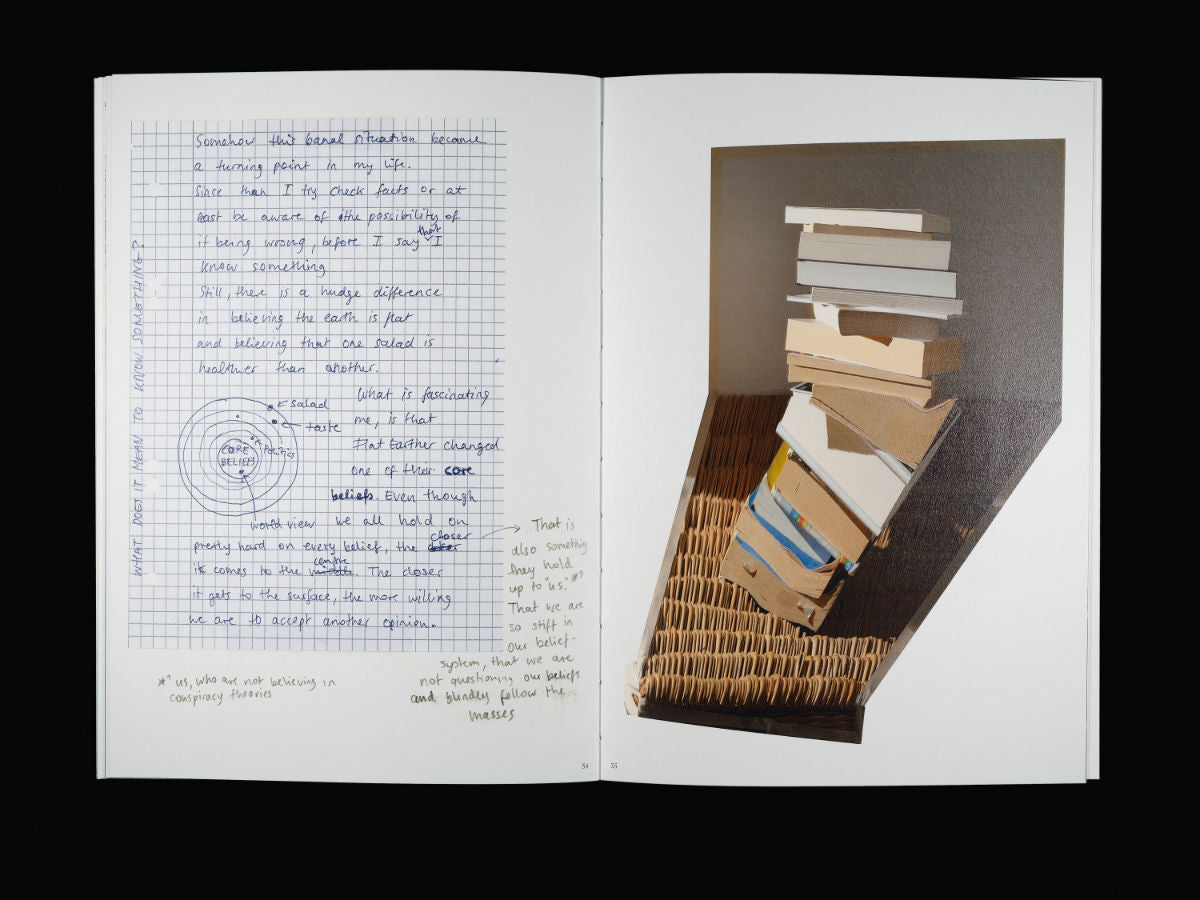 WHAT DOES IT MEAN TO KNOW SOMETHING?
Somehow this banal situation became
a turning point in my life.
Since than I try check facts or at
east be aware of the possibility of
it being wrong, before I say that I
know something
Still, there is a hudge difference
in believing the earth is flat
and believing that one salad is
healthier than another.
What is fascinating
me, is that
Flat Earther changed
one of their core
beliefs. Even though
we all hold on
pretty hard on every belief, the closer
it comes to the centre. The closer
it gets to the surface, the more willing
we are to accept another opinion.
salad
taste
Politics
CORE
BELIEFS
world view
That is
also something
they hold
up to "us."*¹
That we are
so stiff in
our belief-
system, that we are
not questioning our beliefs
and blindly follow the
masses
*¹ us, who are not believing in
conspiracy theories
34
35